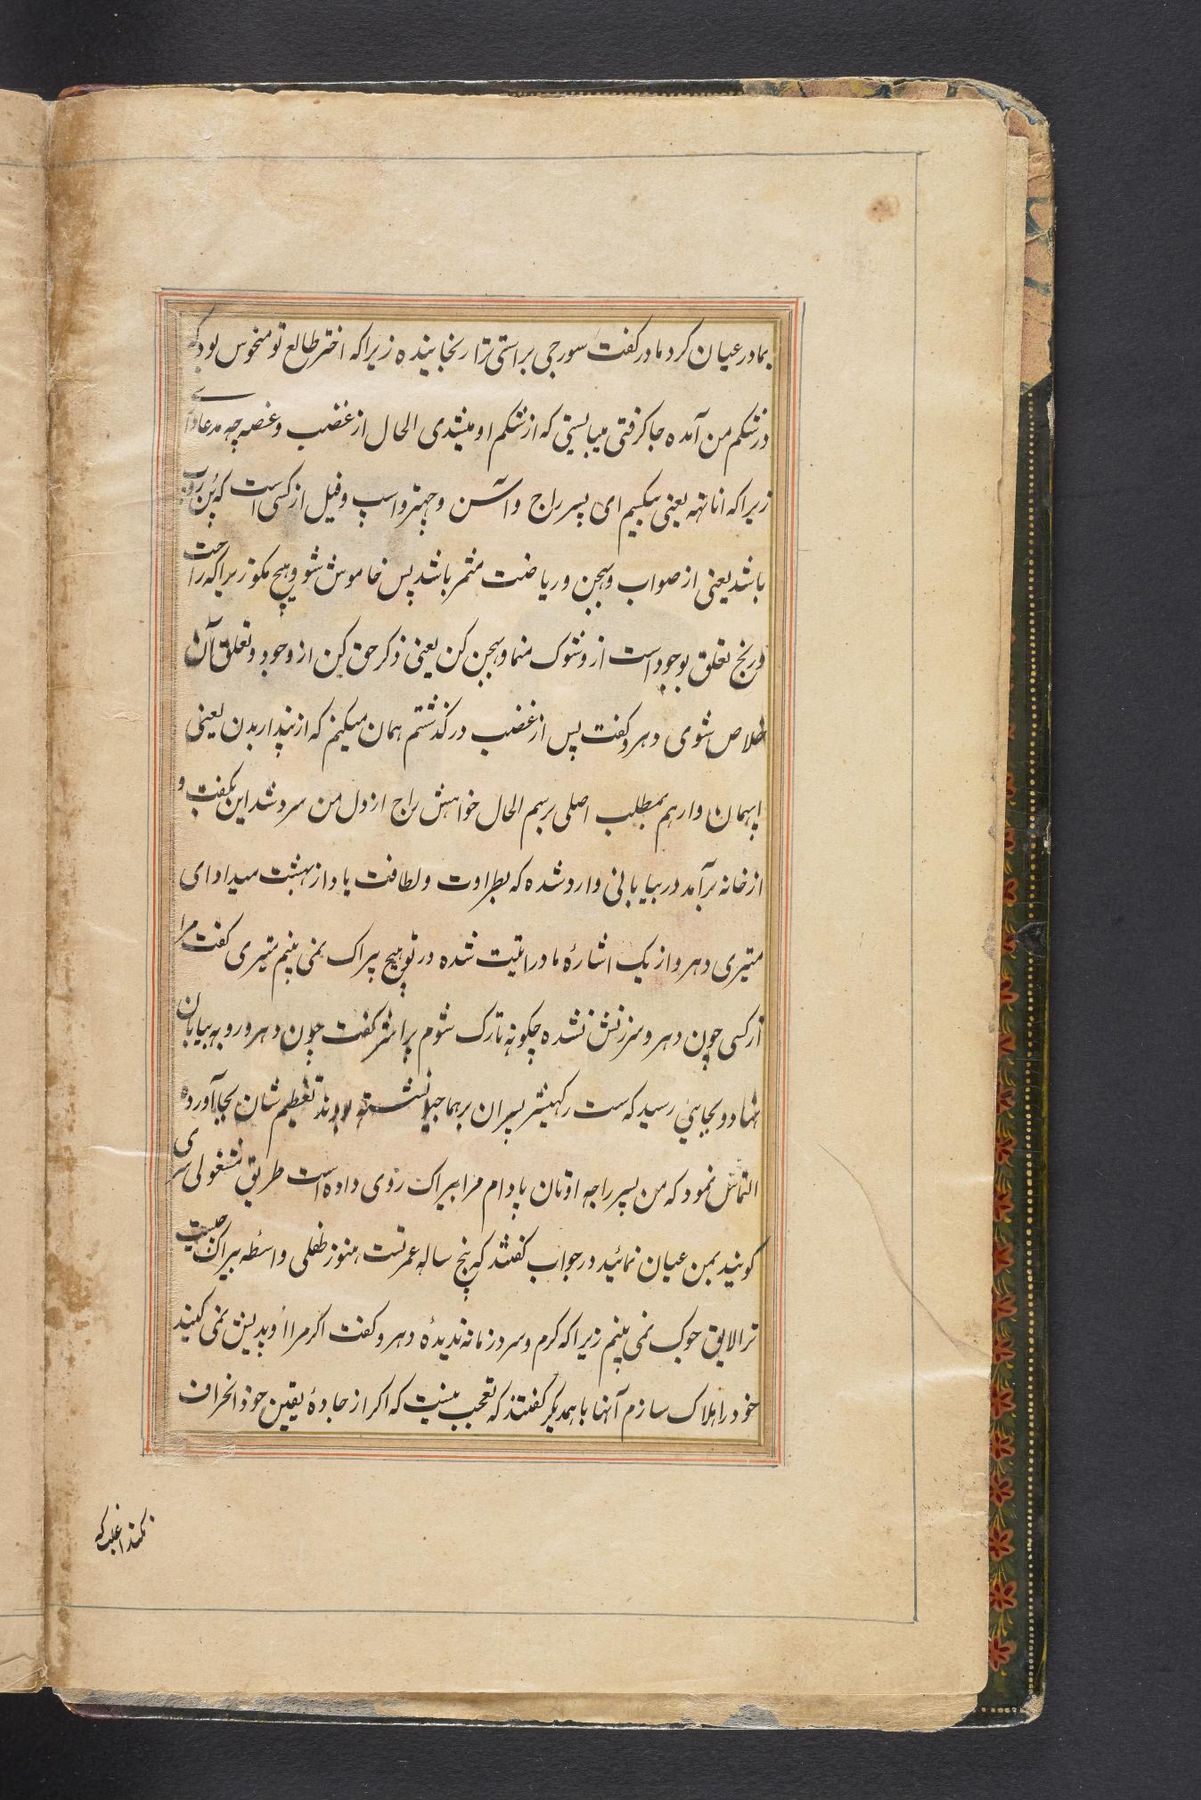 بمادر عیان کرد مادر گفت سورجی براستی ترا رنجانیده زیرا که اختر طالع تو منحوس بود که
در شکم من آمده جا گرفتی میبایستی که از شکم او میشدی الحال از غضب و غصه چه مدعا داری
زیرا که اناتهه یعنی بیکسیم ای پسر راج و آسن و چهتر و اسپ و فیل از کسی است که پُن
باشد یعنی از صواب و بهجن و ریاضت مثمر باشد پس خاموش شو و هیچ مگو زیرا که راحت
و رنج تعلق بوجود است ازو شوک منما و بهجن کن یعنی ذکر حق کن از وجود و تعلق آن
خلاص شوی دهرو گفت پس از غضب در گذشتم همان میکنم که از پندار بدن یعنی
ابهمان وارهم بمطلب اصلی برسم الحال خواهش راج از دل من سرد شد این بگفت و
از خانه برآمد در بیابانی وارد شده که بطراوت و لطافت یاد از بهشت میداد ای
متیری دهرو از یک اشارهٔ مادر اتیت شده در تو هیچ بیراک نمی بینم متیری گفت مرا
از کسی چون دهرو سرزنش نشده چگونه تارک شوم پراشر گفت چون دهرو رو به بیابان
نهاد و بجایی رسید که ست رکهیشر پسران برهما جیو نشسته بودند تعظیم شان بجا آورده
التماس نمود که من پسر راجه اوتان پادام مرا بیراک روی داده است طریق مشغولی سری
گوبند بمن عیان نمائید در جواب گفتند که پنج ساله عمر تست هنوز طفلی واسطه بیراک چیست
ترا لایق جوگ نمی بینم زیرا که گرم و سرد زمانه ندیدهٔ دهرو گفت اگر مرا اُوپدیش نمی کنید
خود را هلاک سازم آنها با همدیگر گفتند که تعجب نیست که اگر از جادهٔ یقین خود انحراف
نکند اغلب که